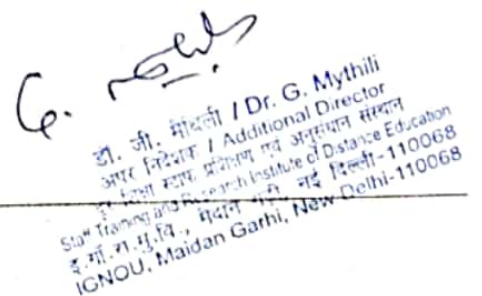 G. Mythili
डा. जी. मैथिली / Dr. G. Mythili
अपर निदेशक / Additional Director
दूर शिक्षा स्टाफ प्रशिक्षण एवं अनुसंधान संस्थान
Staff Training and Research Institute of Distance Education
इ.गाँ.रा.मु.वि., मैदान गढ़ी, नई दिल्ली-110068
IGNOU, Maidan Garhi, New Delhi-110068